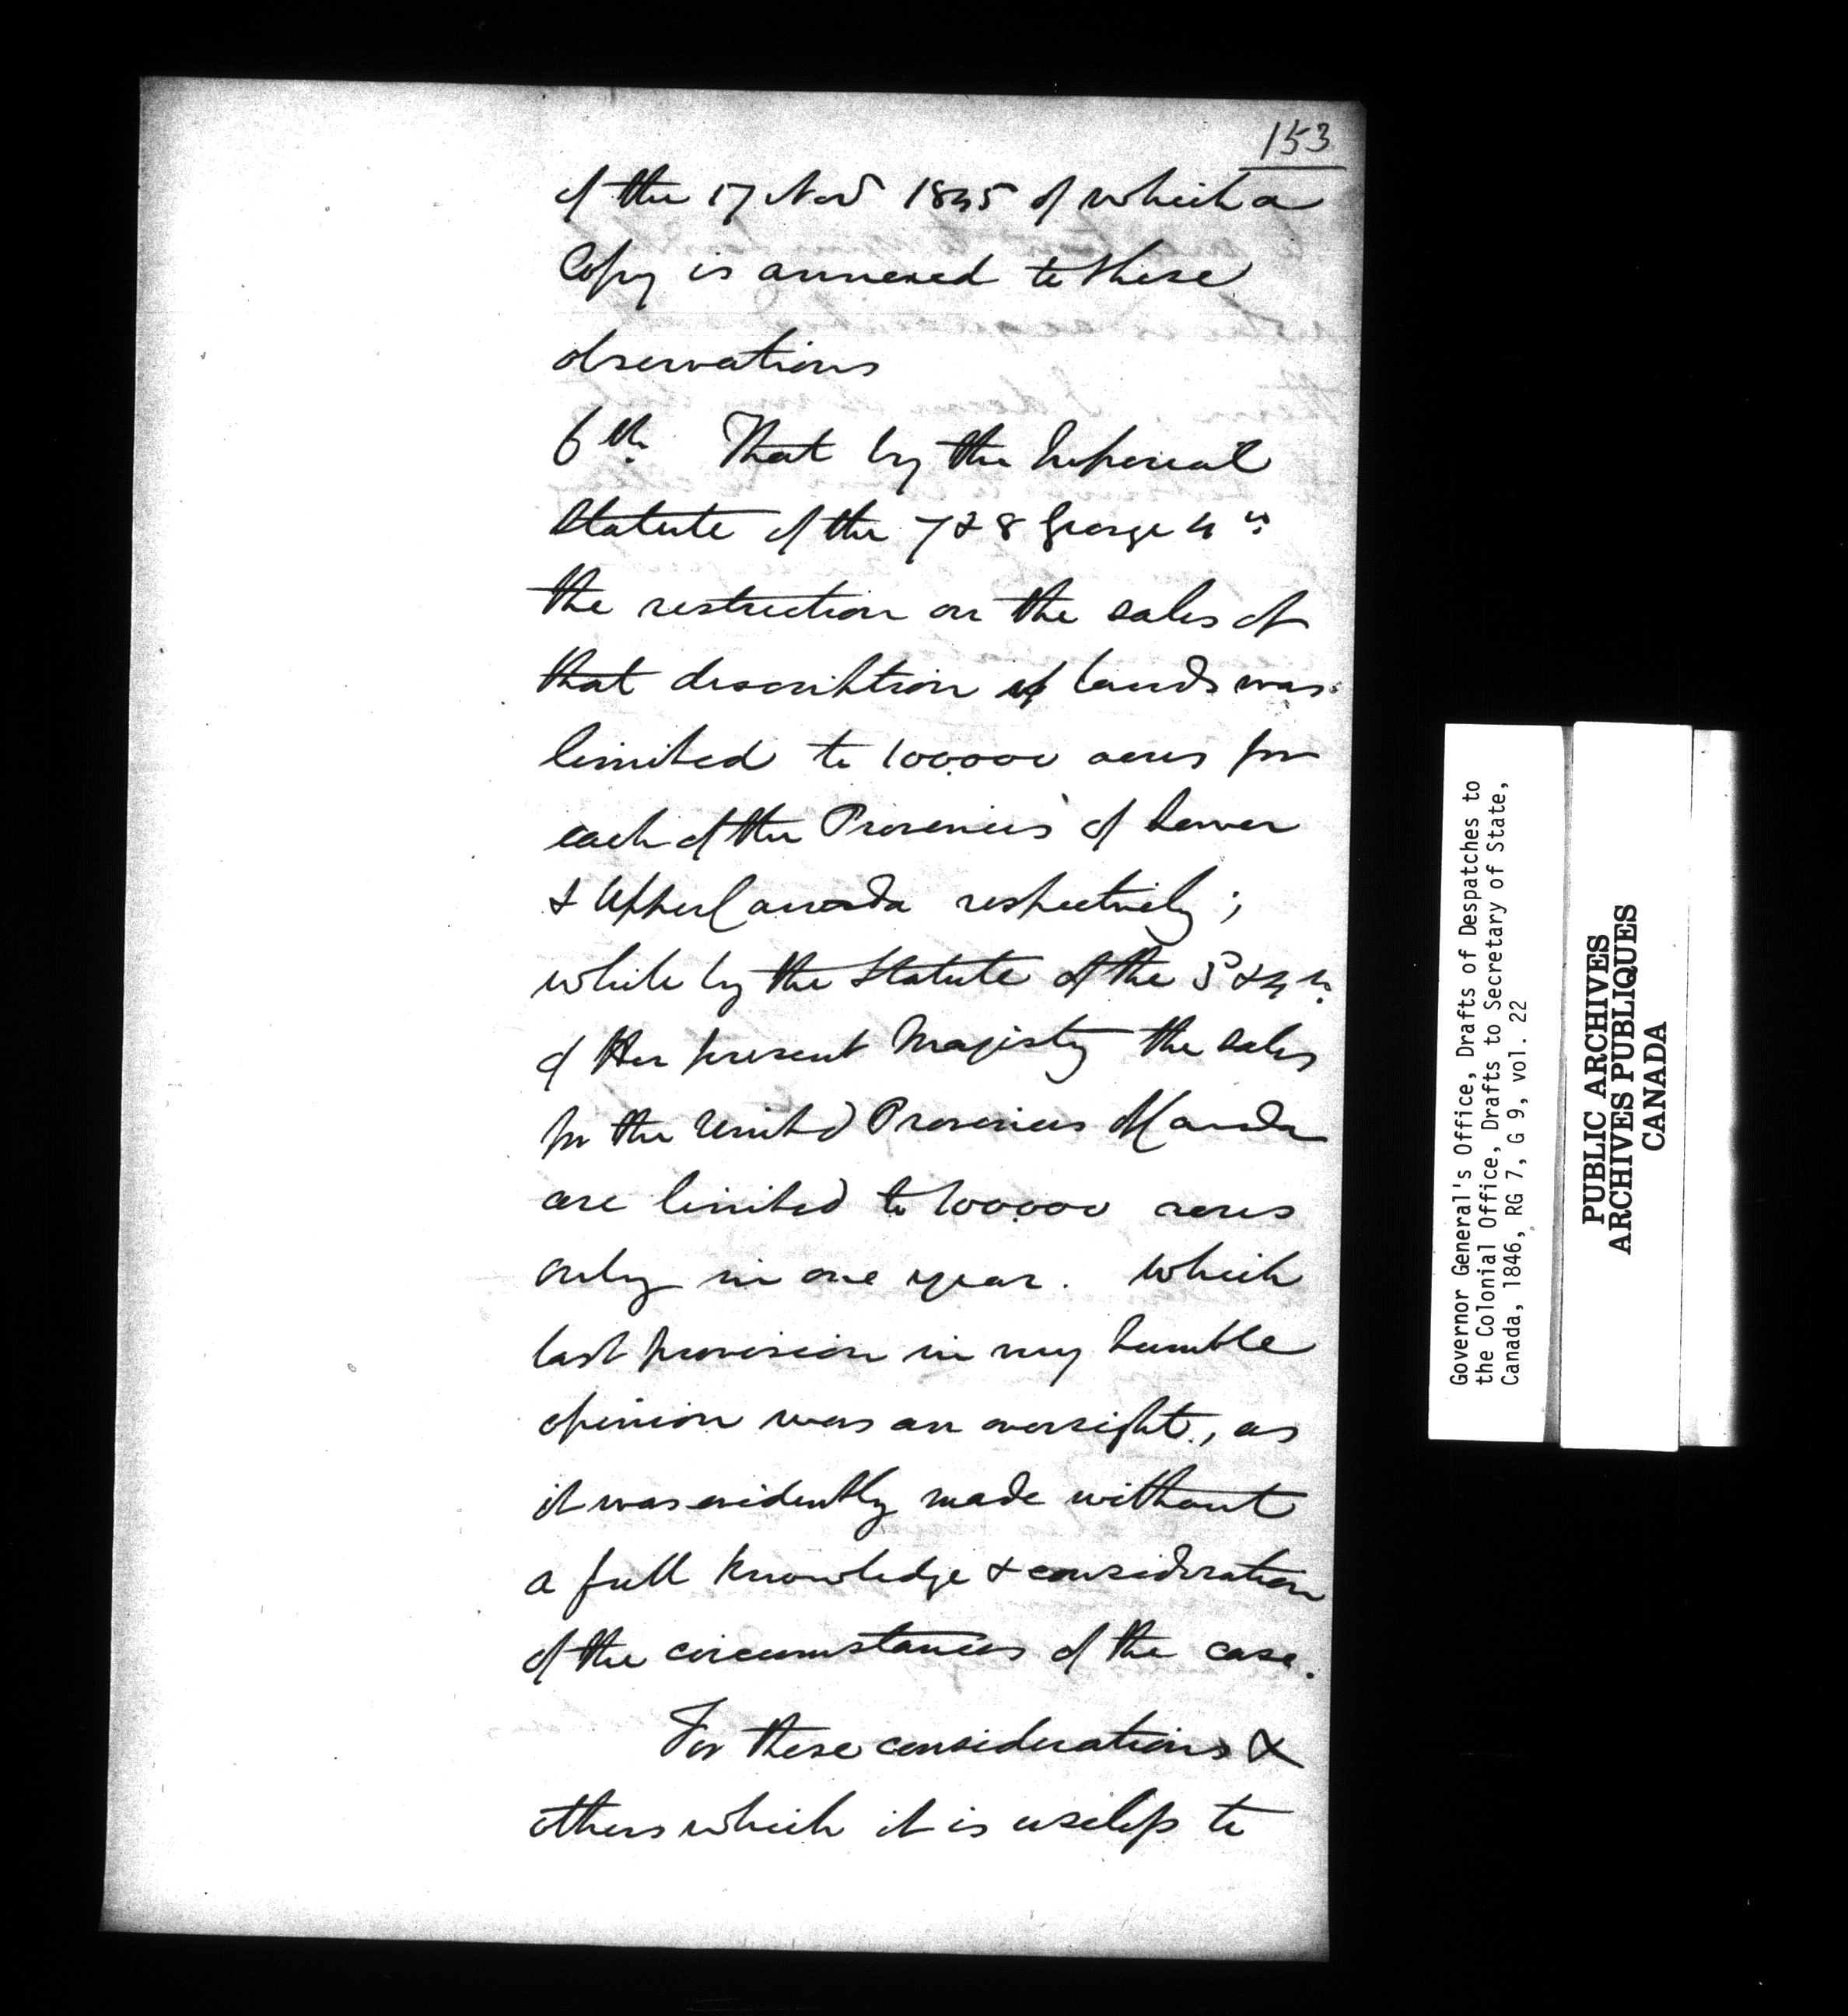 153
of the 17 Nov 1845 of which a
Copy is annexed to these
observations
6th. That by the Imperial
Statute of the 7 & 8 George 4th
the restriction on the sales of
that description of lands was
limited to 100.000 acres for
each of the Provinces of Lower
& Upper Canada respectively;
while by the Statute of the 3d & 4th.
of Her present Majesty the sales
for the United Provinces of Canada
are limited to 100.000 acres
only in one year. Which
last provision in my humble
opinion was an oversight, as
it was evidently made without
a full knowledge & consideration
of the circumstances of the case.
For these considerations &
others which it is useless to
Governor General's Office, Drafts of Despatches to
the Colonial Office, Drafts to Secretary of State,
Canada, 1846, RG 7, G 9, vol. 22
PUBLIC ARCHIVES
ARCHIVES PUBLIQUES
CANADA